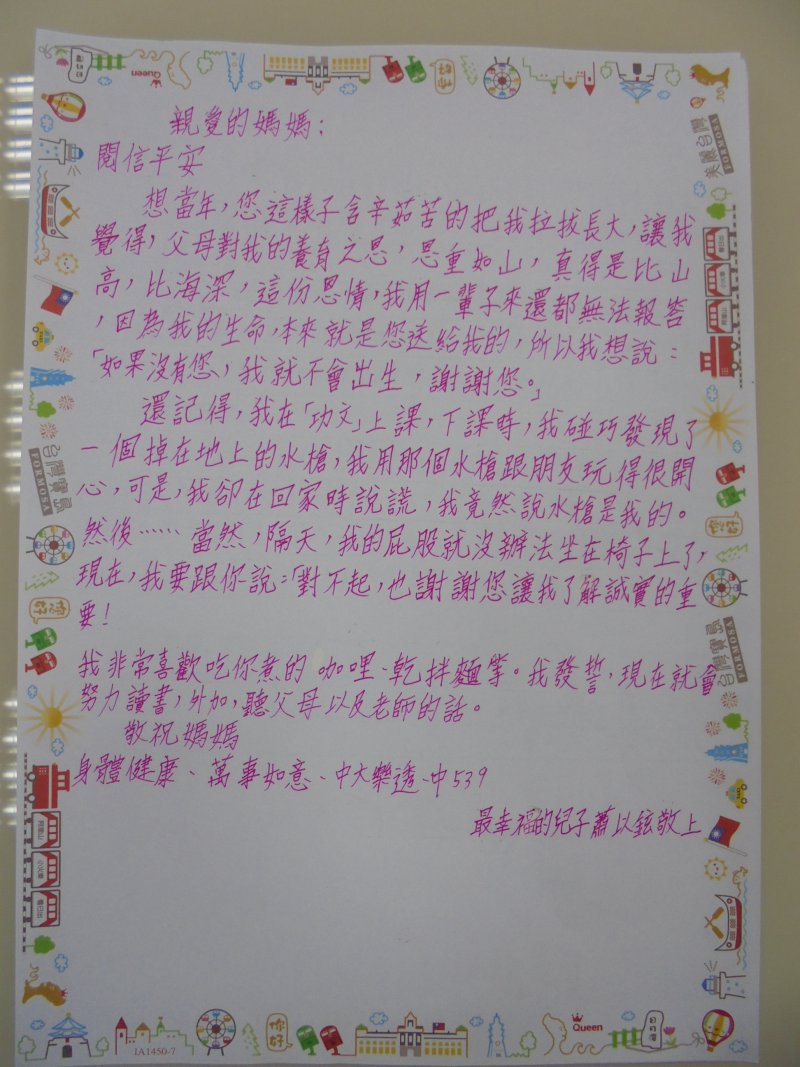 Queen
親愛的媽媽：
閱信平安
想當年，您這樣子含辛茹苦的把我拉拔長大，讓我
覺得，父母對我的養育之恩，恩重如山，真得是比山
高，比海深，這份恩情，我用一輩子來還都無法報答
，因為我的生命，本來就是您送給我的，所以我想說：
「如果沒有您，我就不會出生，謝謝您。」
還記得，我在「功文」上課，下課時，我碰巧發現了
一個掉在地上的水槍，我用那個水槍跟朋友玩得很開
心，可是，我卻在回家時說謊，我竟然說水槍是我的。
然後……當然，隔天，我的屁股就沒辦法坐在椅子上了，
現在，我要跟你說：「對不起，也謝謝您讓我了解誠實的重
要！
我非常喜歡吃你煮的咖哩、乾拌麵等。我發誓，現在就會
努力讀書，外加，聽父母以及老師的話。
敬祝媽媽
身體健康、萬事如意、中大樂透、中539
最幸福的兒子蕭以鉉敬上
美麗台灣
FORMOSA
台灣寶島
FORMOSA
台灣寶島
FORMOSA
你好
Queen
日月潭
1A1450-7